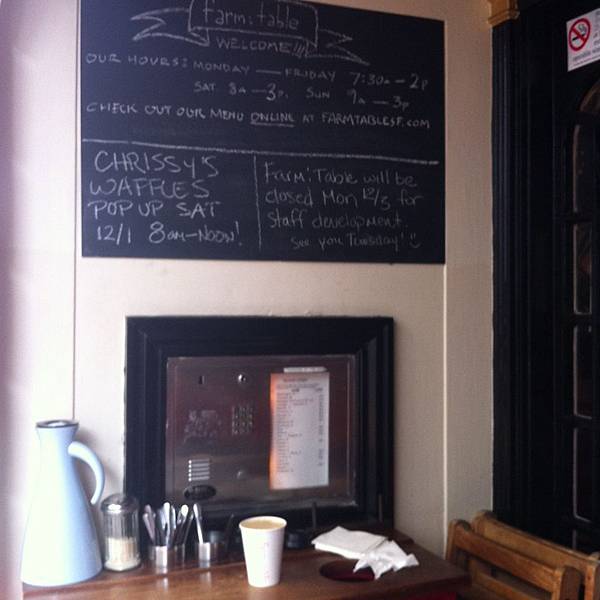 farm:table
WELCOME!!!
OUR HOURS: MONDAY — FRIDAY 7:30a — 2p
SAT 8a — 3p. SUN 9a — 3p
CHECK OUT OUR MENU ONLINE AT FARMTABLESF.COM
CHRISSY'S
WAFFLES
POP UP SAT
12/1 8am-NOON!
Farm:Table will be
closed Mon 12/3 for
staff development.
See you Tuesday!